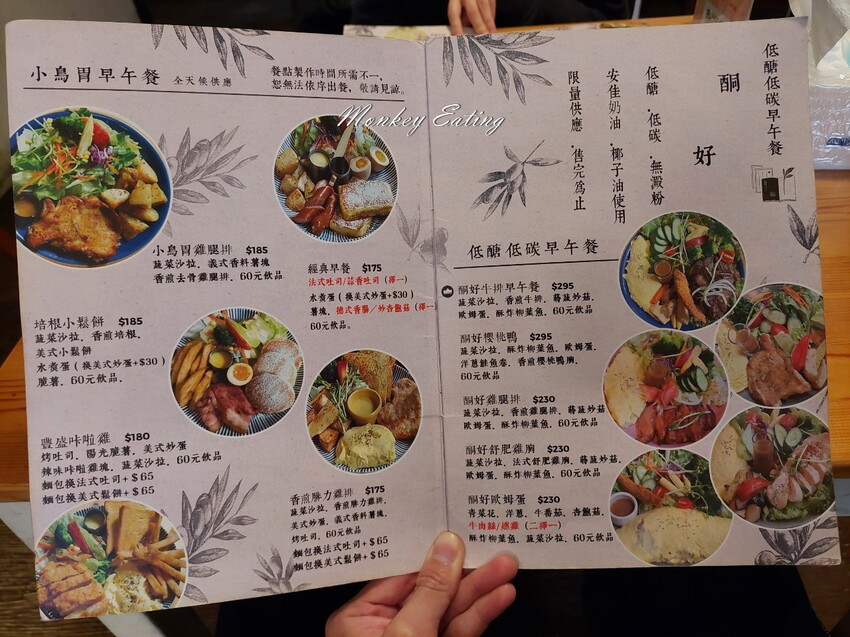 小鳥胃早午餐 全天候供應
餐點製作時間所需不一，
恕無法依序出餐，敬請見諒。
Monkey Eating
小鳥胃雞腿排 $185
蔬菜沙拉，義式香料薯塊
香煎去骨雞腿排，60元飲品
經典早餐 $175
法式吐司/蒜香吐司（擇一）
水煮蛋（換美式炒蛋+$30）
薯塊，德式香腸／炒杏鮑菇（擇一
60元飲品。
培根小鬆餅 $185
蔬菜沙拉，香煎培根，
美式小鬆餅
水煮蛋（換美式炒蛋+$30）
脆薯，60元飲品，
豐盛咔啦雞 $180
烤吐司，陽光脆薯，美式炒蛋
辣味咔啦雞塊，蔬菜沙拉，60元飲品
麵包換法式吐司+＄65
麵包換美式鬆餅+＄65
香煎勝力雞排 $175
蔬菜沙拉，香煎勝力雞排，
美式炒蛋，義式香料薯塊，
烤吐司，60元飲品
麵包換法式吐司+＄65
麵包換美式鬆餅+＄65
低醣低碳早午餐
酮 好
低醣．低碳．無澱粉
安佳奶油．椰子油使用
限量供應．售完為止
低醣低碳早午餐
酮好牛排早午餐 $295
蔬菜沙拉，香煎牛排，蒔蔬炒菇，
歐姆蛋，酥炸柳葉魚，60元飲品
酮好櫻桃鴨 $295
蔬菜沙拉，酥炸柳葉魚，歐姆蛋，
洋蔥鮭魚卷，香煎櫻桃鴨胸，
60元飲品
酮好雞腿排 $230
蔬菜沙拉，香煎雞腿排，蒔蔬炒菇
歐姆蛋，酥炸柳葉魚，60元飲品
酮好舒肥雞胸 $230
蔬菜沙拉，法式舒肥雞胸，蒔蔬炒菇，
歐姆蛋，酥炸柳葉魚，60元飲品
酮好歐姆蛋 $230
青菜花，洋蔥，牛番茄，杏鮑菇，
牛肉絲/燻雞（二擇一）
酥炸柳葉魚，蔬菜沙拉，60元飲品